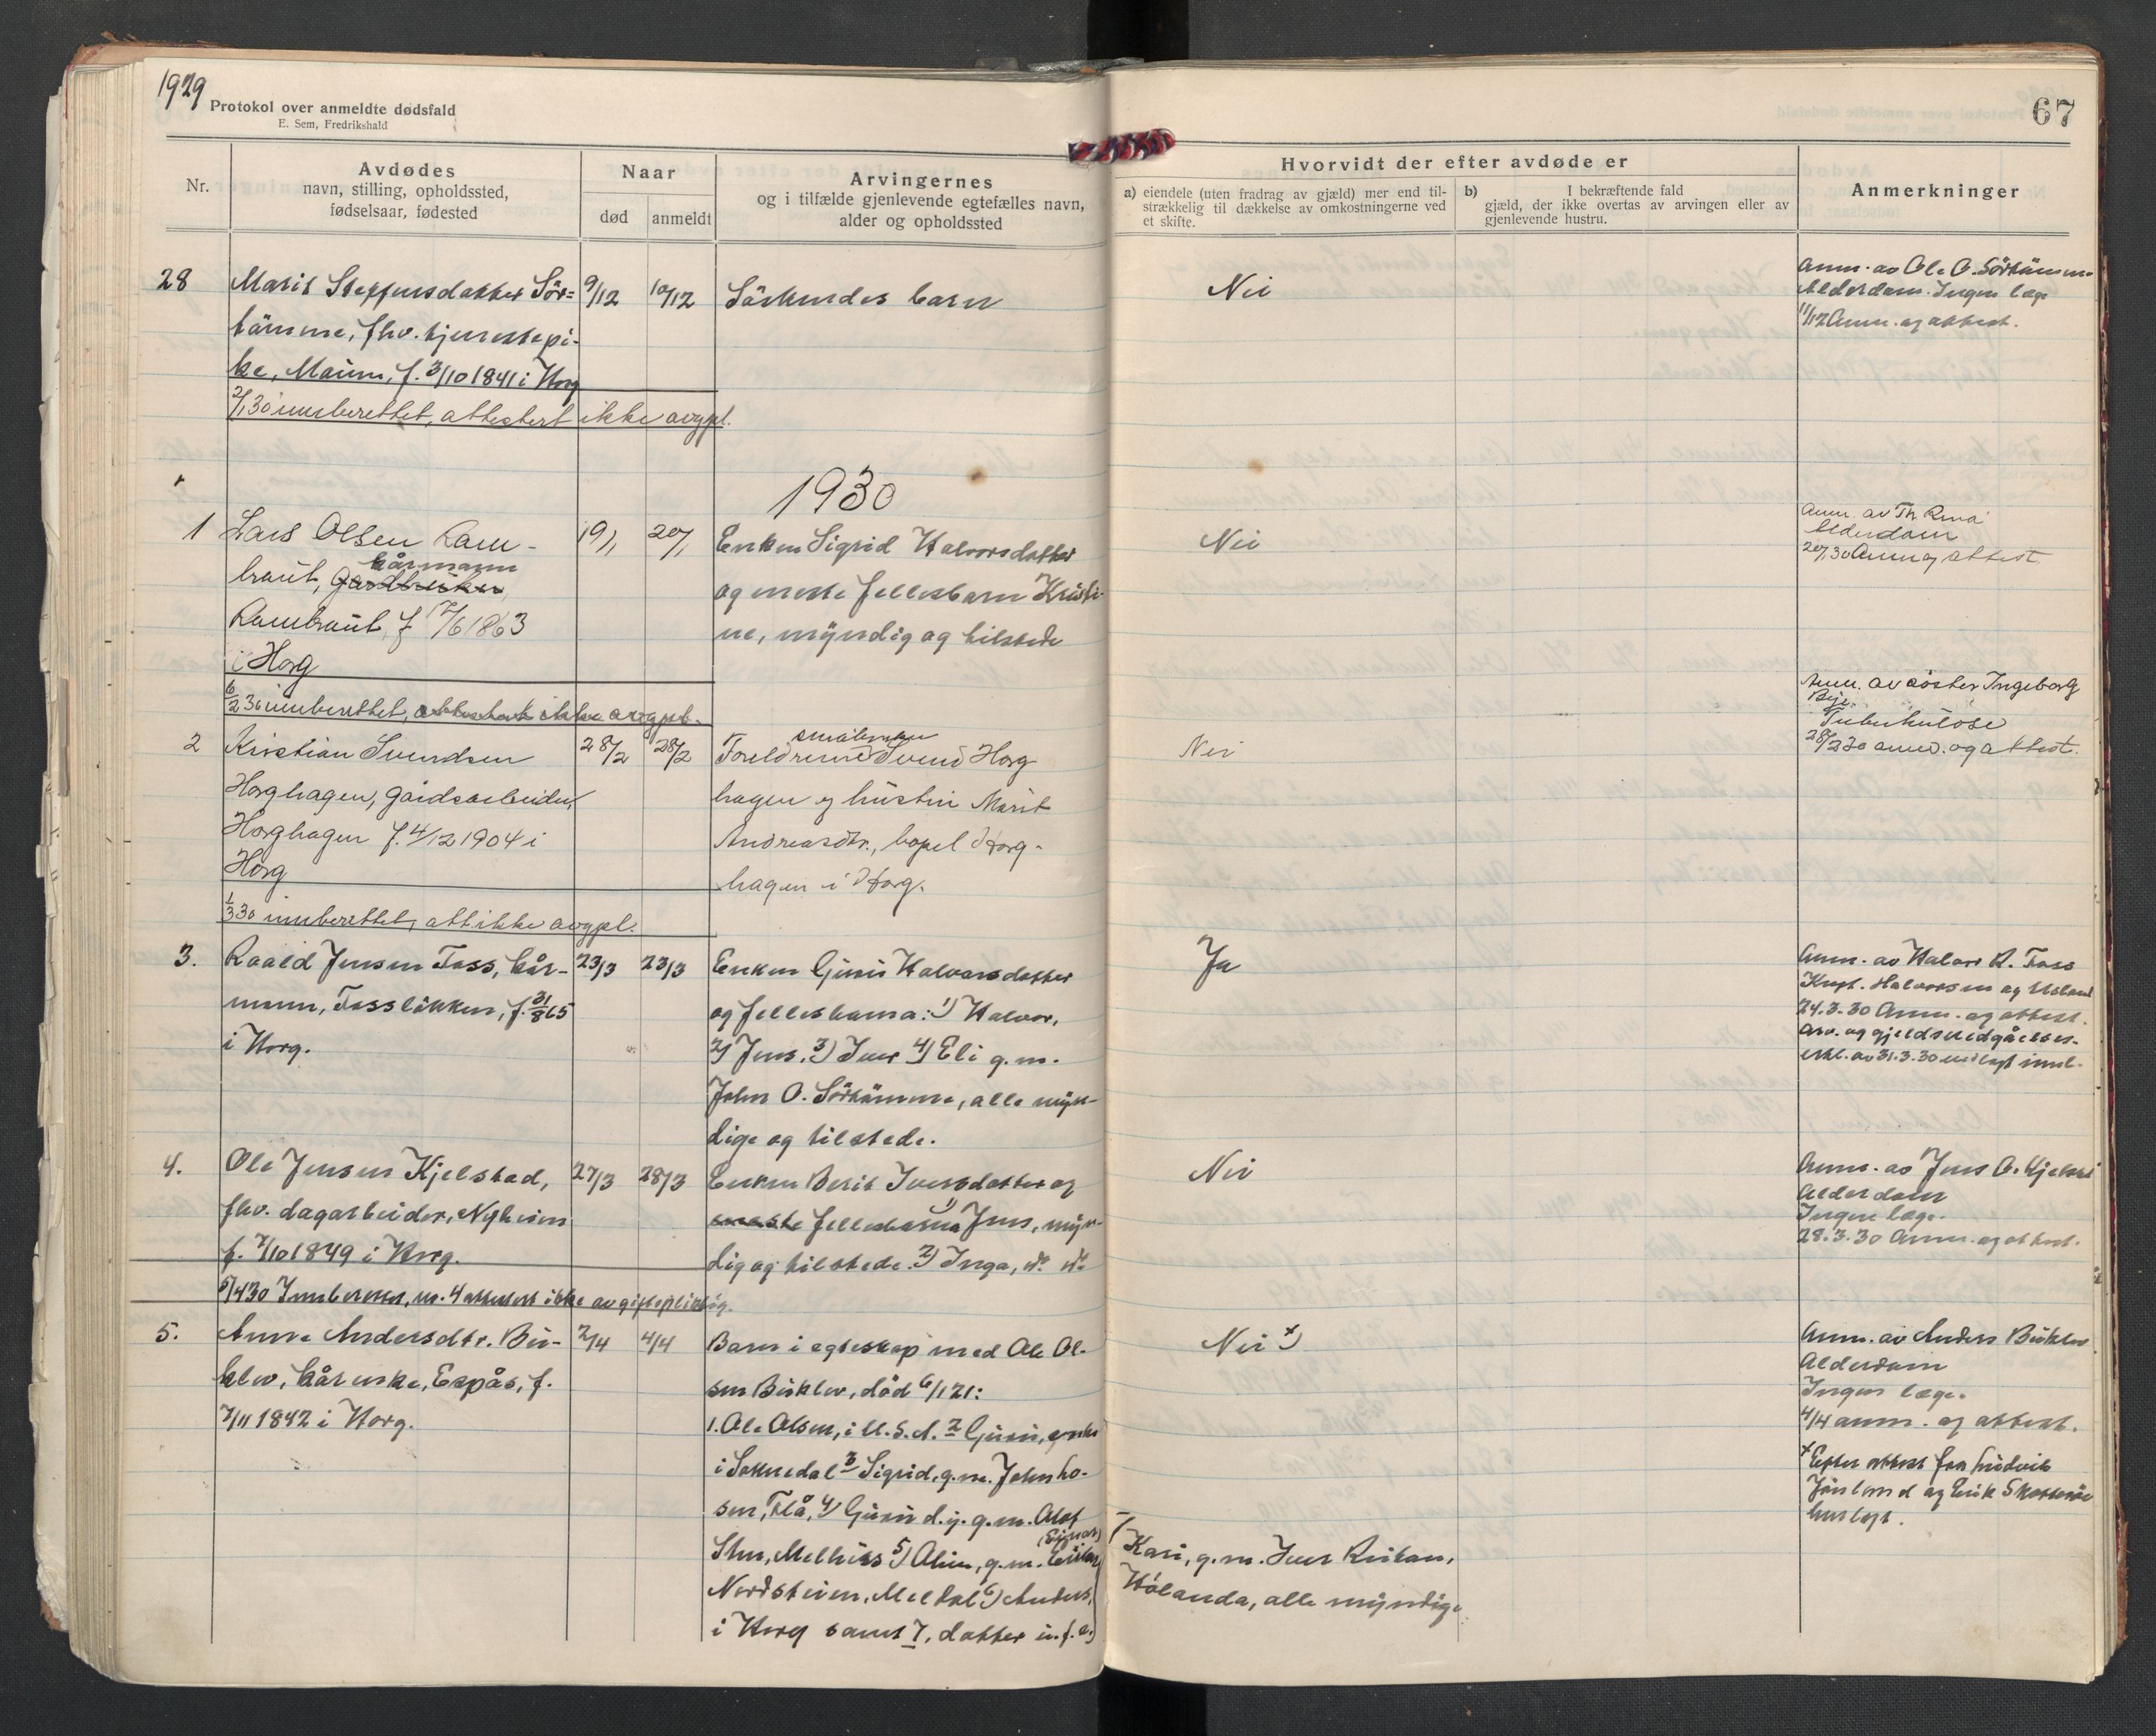 1929
Protokol over anmeldte dødsfald
E. Sem, Fredrikshald
67
Nr.
Avdødes
navn, stilling, opholdssted,
fødselsaar, fødested
Naar
død
anmeldt
Arvingernes
og i tilfælde gjenlevende egtefælles navn,
alder og opholdssted
Hvorvidt der efter avdøde er
a) eiendele (uten fradrag av gjæld) mer end til-
strækkelig til dækkelse av omkostningerne ved
et skifte.
b) I bekræftende fald
gjæld, der ikke overtas av arvingen eller av
gjenlevende hustru.
Anmerkninger
28
Marit Steffensdatter Sör=
tömme, fhv. tjenestepi-
ke, Maum, f. 3/10 1841 i Horg
2/1 30 innberettet, attestert ikke avgpl.
9/12
10/12
Särkundes barn
Nei
Anm. av Ole O. Sörtömme
Alderdom. Ingen læge
11/12 Anm. og attest.
1930
1
Lars Olsen Ram-
kårmann
braut, Gardbruker,
Rambraut, f 17/6 1863
i Horg
6/2 30 innberettet, attestert ikke avgpl.
19/1
20/1
Enken Sigrid Halvorsdatter
og eneste fellesbarn Kristi-
ne, myndig og tilstede
Nei
Anm. av Th
Alderdom
20/1 30 Anm og attest
2
Kristian Svendsen
Horghagen, gårdsarbeider,
Horghagen f. 4/12 1904 i
Horg
1/3 30 innberettet, att ikke avgpl.
28/2
28/2
Foreldrene Svend Horg
hagen og hustru Marit
Andreasdtr., bopel Horg-
hagen i Horg.
Nei
Anm. av søster Ingeborg
Tuberkulose
28/2 30 anm. og attest.
3.
Roald Jensen Foss, kår-
mann, Fosslökken, f. 31/8 65
i Horg.
23/3
23/3
Enken Guru Halvorsdatter
og fellesbarna: 1) Halvor,
2) Jens, 3) Iver 4) Eli g. m.
John O. Sörtömme, alle myn-
dige og tilstede.
Ja
Anm. av Halvor R. Foss
Halvorsen og
24.3.30 Anm. og attest.
Arv. og gjeldsvedgåelses-
erkl. av 31.3.30 vedlagt innb.
4.
Ole Jensen Kjelstad,
fhv. dagarbeider, Nyheim
f. 7/10 1849 i Horg.
5/4 30 Innberettet, nr. 4 attestert ikke avgiftspliktig.
27/3
28/3
Enken Berit Iversdatter og
eneste fellesbarna 1) Jens, myn-
dig og tilstede. 2) Inga, do. do.
Nei
Anm. av Jens O. Kjelstad
Alderdom
Ingen læge.
28.3.30 Anm. og attest.
5.
Anne Andersdtr. Bu-
klev, kårenke, Espås, f.
7/11 1842 i Horg.
2/4
4/4
Barn i egteskap med Ole Ol-
sen Buklev, död 6/1 21:
1. Ole Olsen, i U.S.A. 2 Guru, enke
i Soknedal 3 Sigrid, g. m. John Lo-
sen, Flå, 4) Guru d.y. g. m. Olaf
Melhus 5) Oline, g. m. (Einar)
Nordsteien, Meldal 6) Anders,
i Horg samt 7, datter
7/
Kari, g. m. Iver
Hölanda, alle myndige
Nei x)
Anm. av Anders Buklev
Alderdom
Ingen læge.
4/4 anm. og attest.
x Efter attest fra Ludvik
og Erik